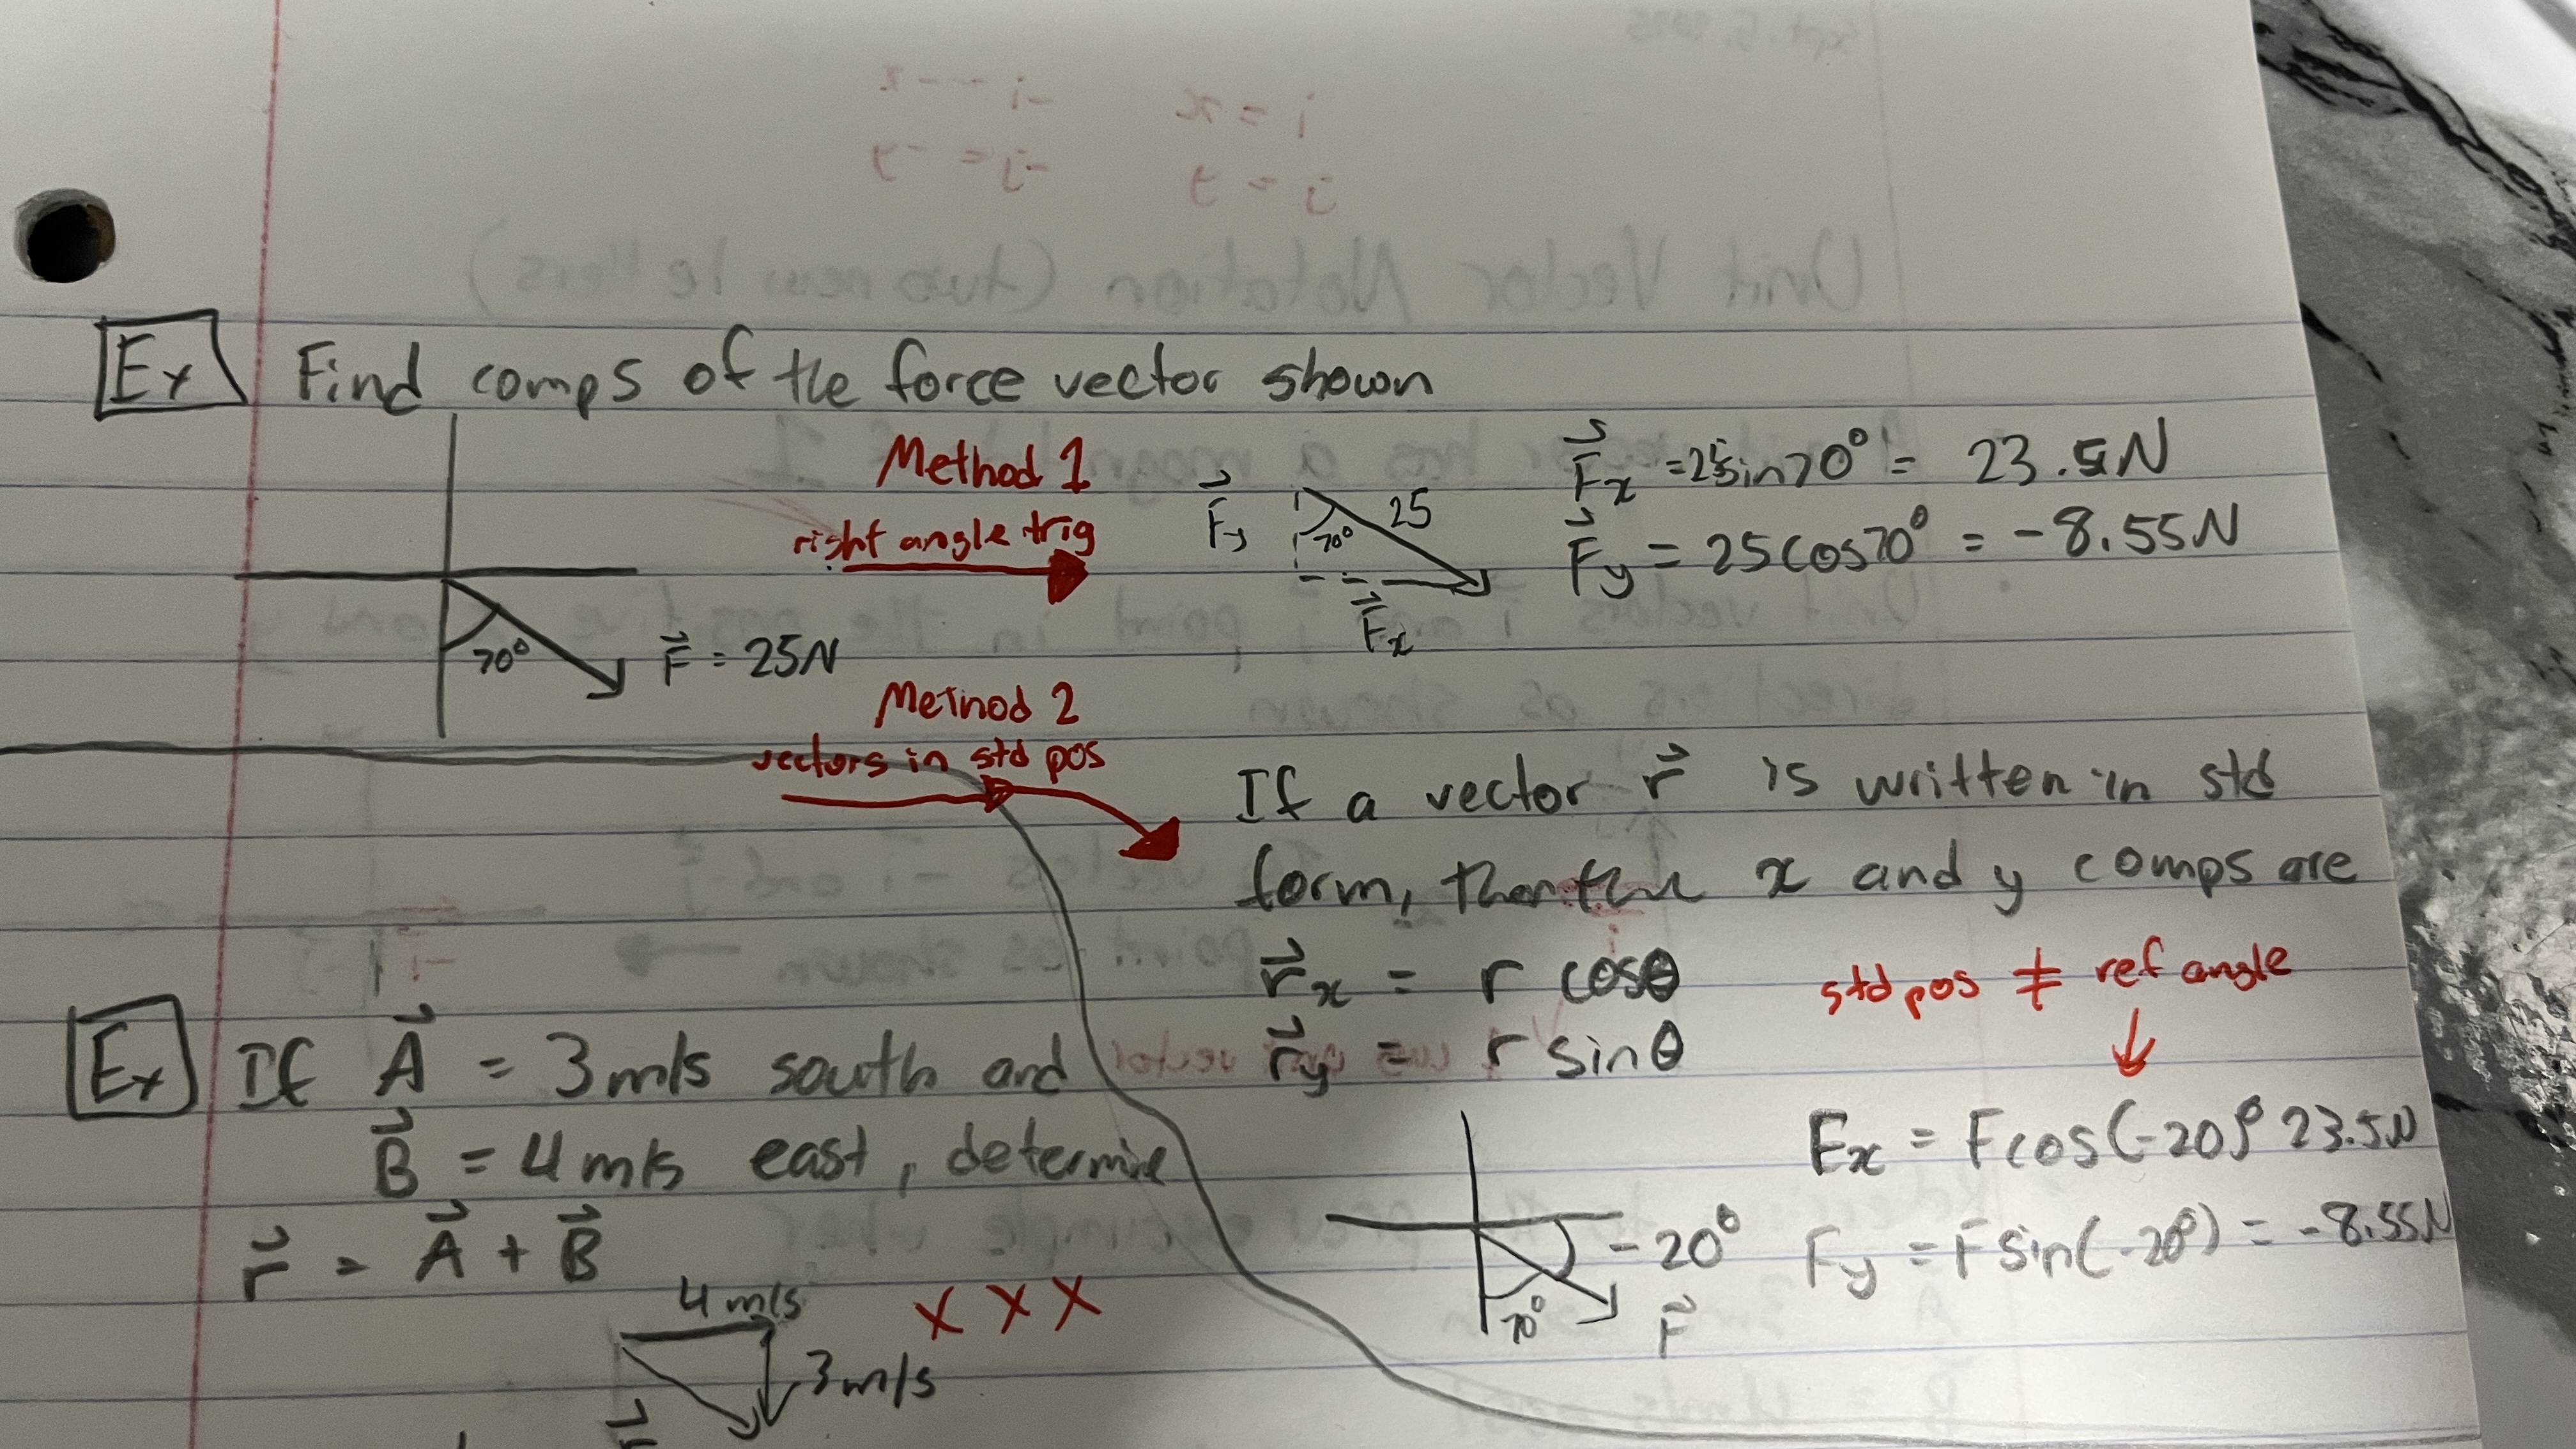 Ex Find comps of the force vector shown
70° F⃗ = 25N
Method 1
right angle trig
F⃗y 70° 25
F⃗x
F⃗x = 25sin70° = 23.5N
F⃗y = 25cos70° = -8.55N
Method 2
vectors in std pos
If a vector r⃗ is written in std
form, then the x and y comps are
r⃗x = r cosθ
r⃗y = r sinθ
std pos ≠ ref angle
-20°
70° F⃗
Fx = Fcos(-20)° 23.5N
Fy = Fsin(-20°) = -8.55N
Ex If A⃗ = 3m/s south and
B⃗ = 4m/s east, determine
r⃗ = A⃗ + B⃗
4m/s
3m/s
r⃗
X X X